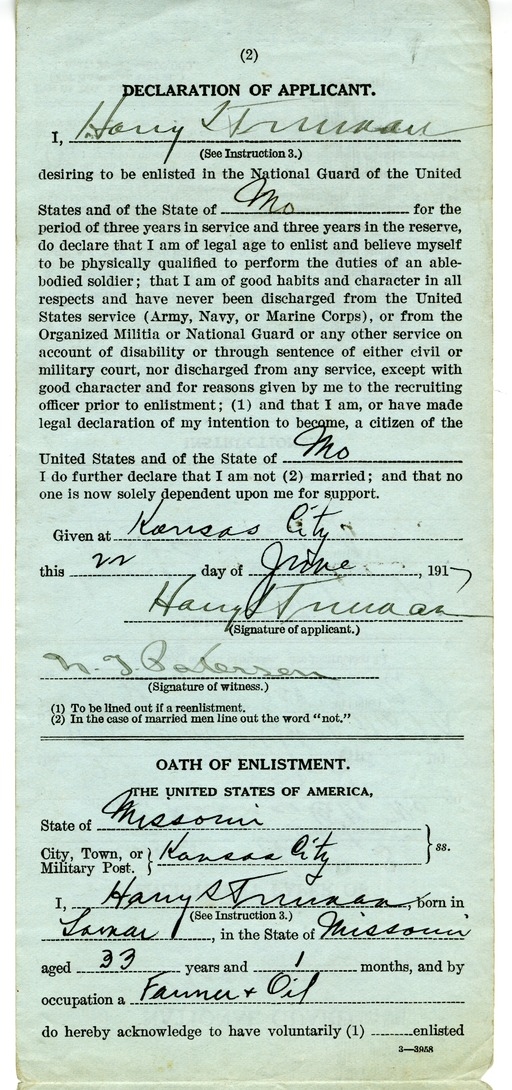 (2)
DECLARATION OF APPLICANT.
I, Harry S Truman
(See Instruction 3.)
desiring to be enlisted in the National Guard of the United
States and of the State of Mo for the
period of three years in service and three years in the reserve,
do declare that I am of legal age to enlist and believe myself
to be physically qualified to perform the duties of an able-
bodied soldier; that I am of good habits and character in all
respects and have never been discharged from the United
States service (Army, Navy, or Marine Corps), or from the
Organized Militia or National Guard or any other service on
account of disability or through sentence of either civil or
military court, nor discharged from any service, except with
good character and for reasons given by me to the recruiting
officer prior to enlistment; (1) and that I am, or have made
legal declaration of my intention to become, a citizen of the
United States and of the State of Mo
I do further declare that I am not (2) married; and that no
one is now solely dependent upon me for support.
Given at Kansas City
this 22 day of June, 1917
Harry S Truman
(Signature of applicant.)
(Signature of witness.)
(1) To be lined out if a reenlistment.
(2) In the case of married men line out the word "not."
OATH OF ENLISTMENT.
THE UNITED STATES OF AMERICA,
State of Missouri
City, Town, or Military Post. } Kansas City } ss.
I, Harry S Truman, born in
(See Instruction 3.)
Lamar, in the State of Missouri
aged 33 years and 1 months, and by
occupation a Farmer + Oil
do hereby acknowledge to have voluntarily (1) enlisted
3—3958